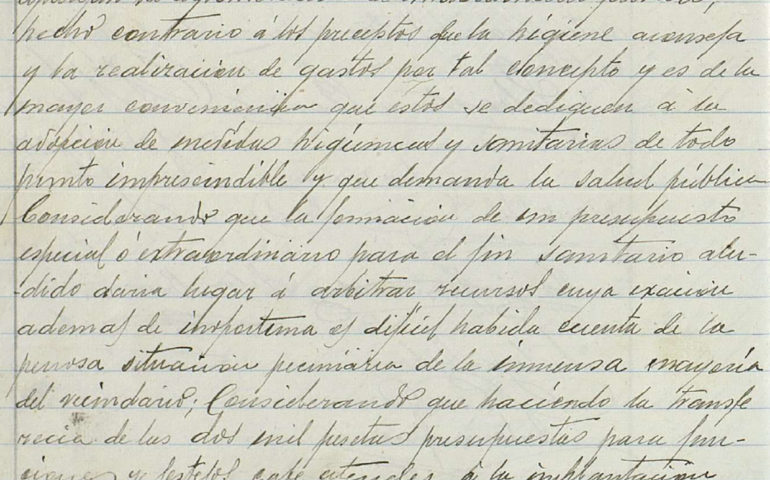 hecho contrario á los preceptos que la higiene aconseja
y la realización de gastos por tal concepto y es de la
mayor conveniencia que estos se dediquen á la
adopción de medidas higiénicas y sanitarias de todo
punto imprescindible y que demanda la salud pública
Considerando que la formación de un presupuesto
especial ó extraordinario para el fin sanitario alu-
-dido daria lugar á arbitrar recursos cuya exacción
ademas de inoportuna es dificil habida cuenta de la
penosa situación pecuniaria de la inmensa mayoria
del vecindario; Considerando que haciendo la transfe
recia de las dos mil pesetas presupuestas para fun-
ciones y festejos cabe atender á la implantación